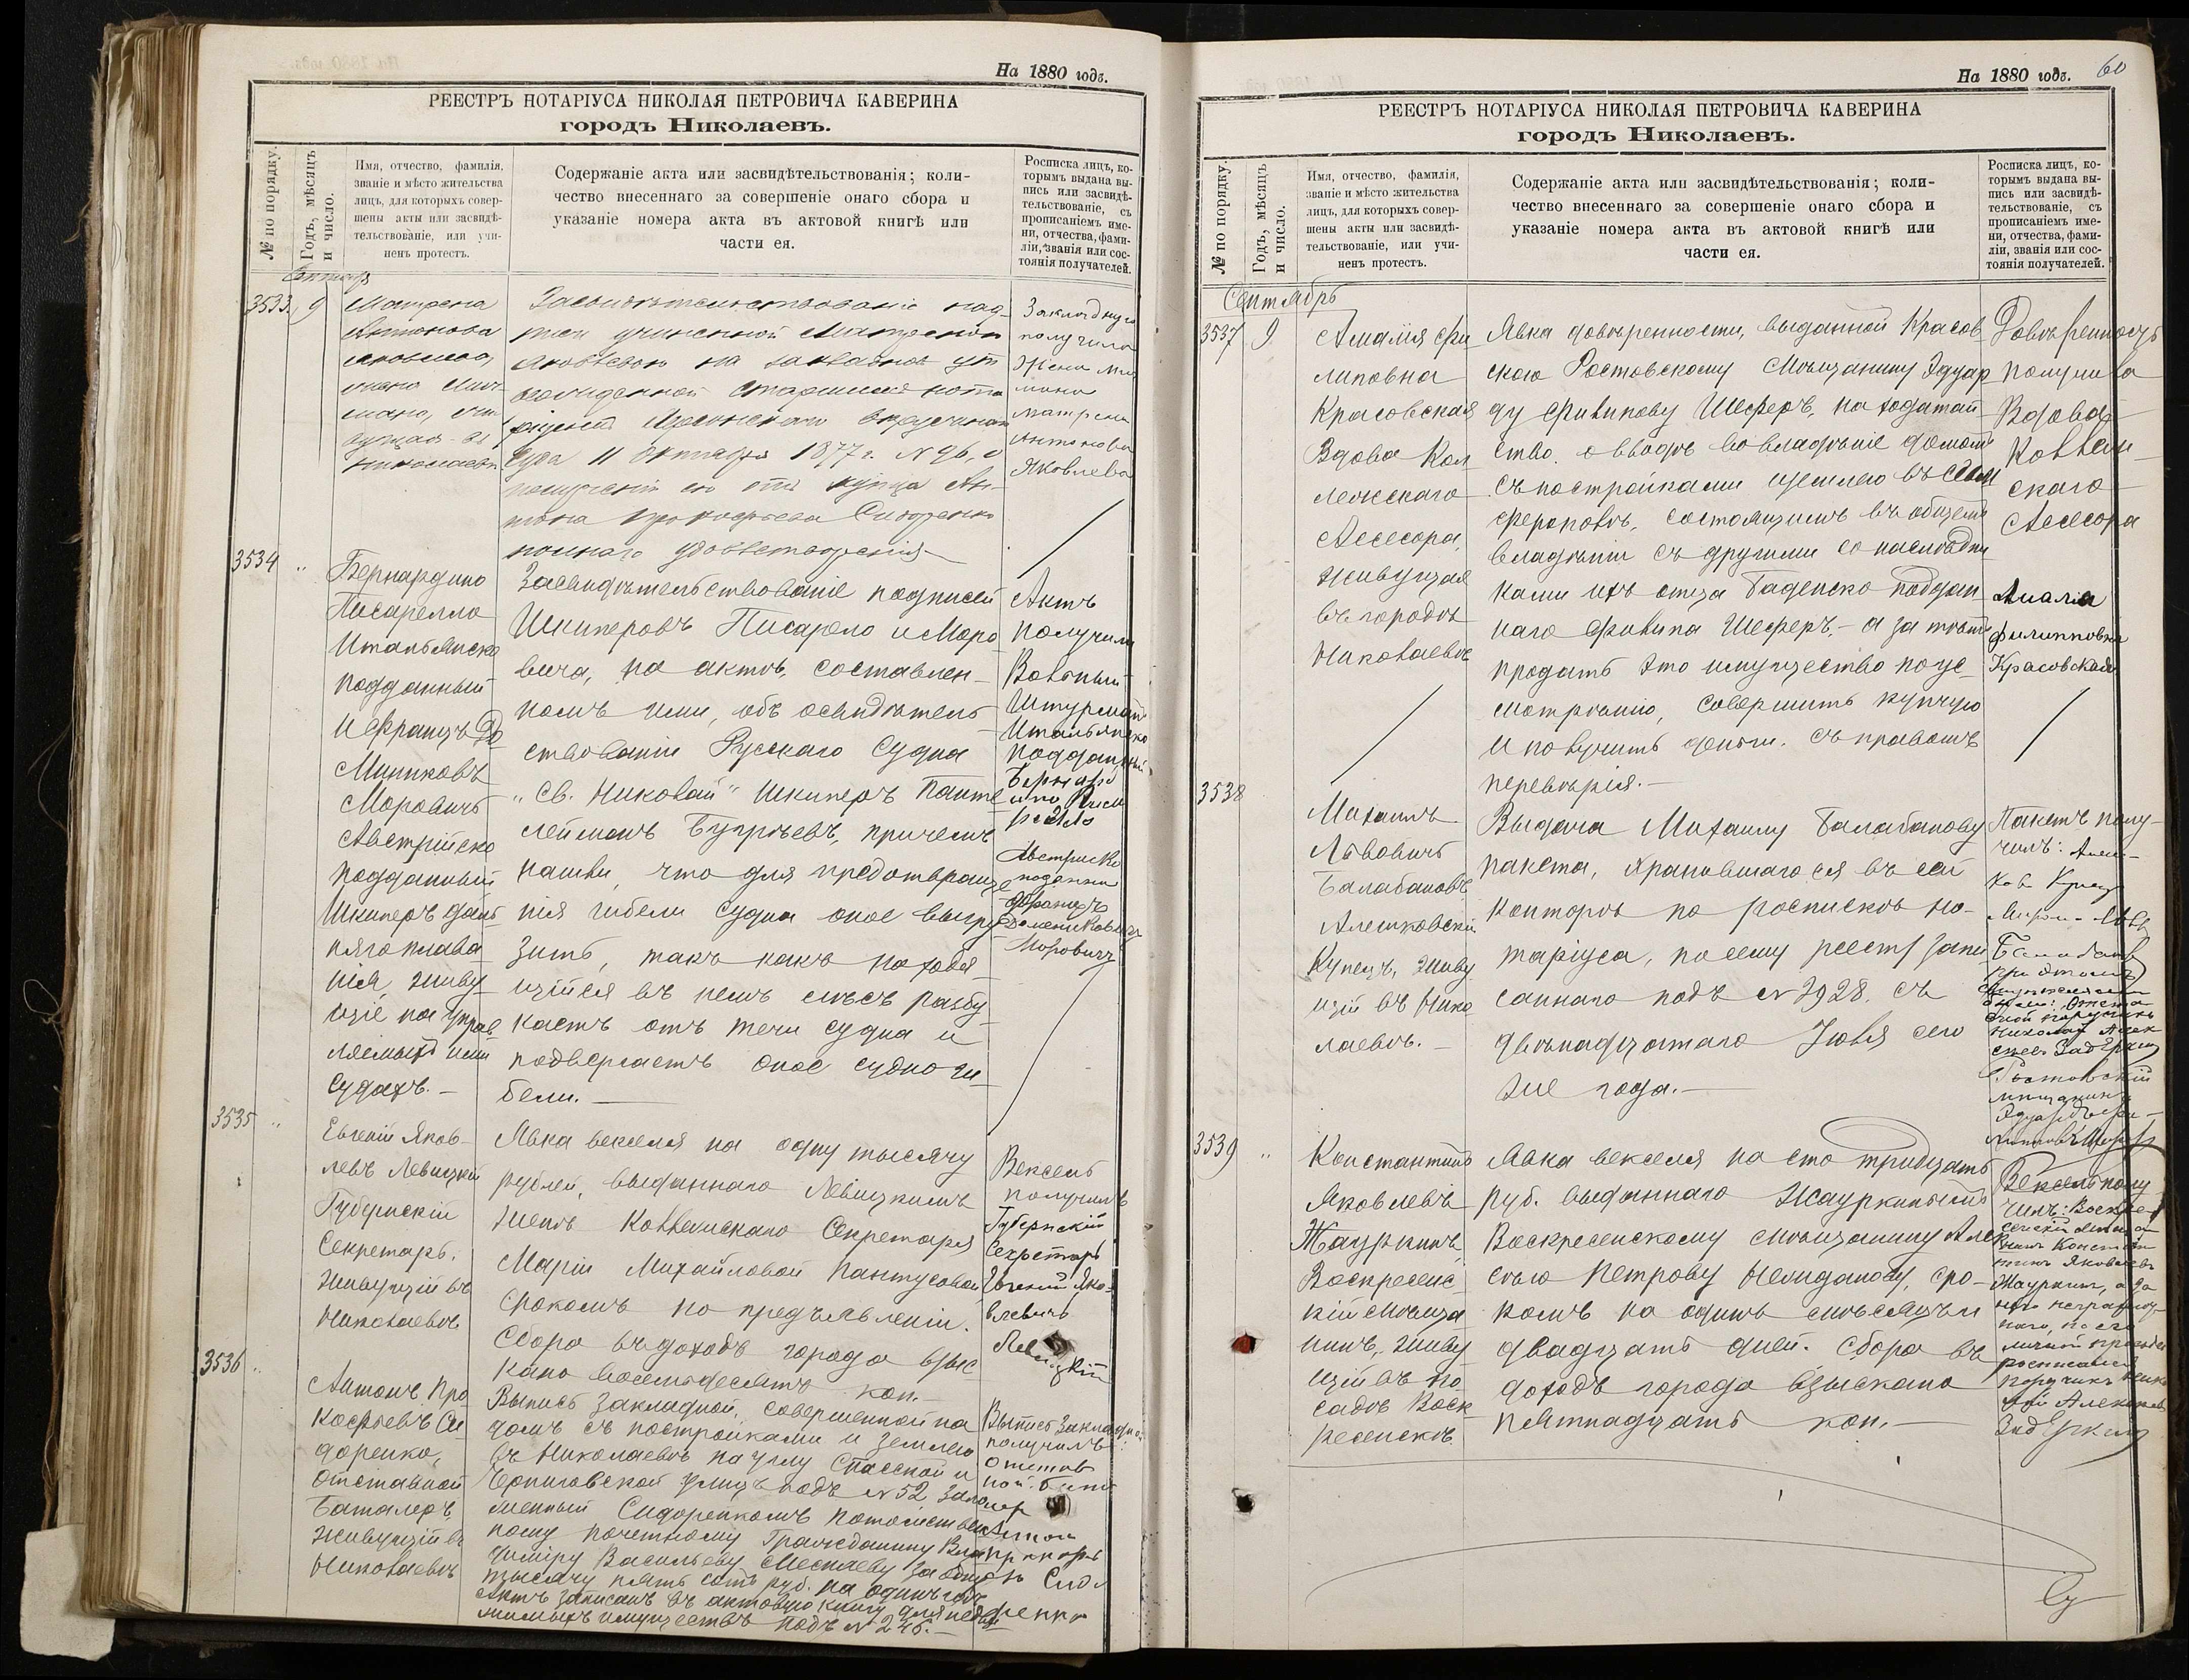 На 1880 годъ.
РЕЕСТРЪ НОТАРІУСА НИКОЛАЯ ПЕТРОВИЧА КАВЕРИНА
городъ Николаевъ.
№ по порядку.
Годъ, мѣсяцъ
и число.
Имя, отчество, фамилія,
званіе и мѣсто жительства
лицъ, для которыхъ совер-
шены акты или засвидѣ-
тельствованіе, или учи-
ненъ протестъ.
Содержаніе акта или засвидѣтельствованія; коли-
чество внесеннаго за совершеніе онаго сбора и
указаніе номера акта въ актовой книгѣ или
части ея.
Росписка лицъ, ко-
торымъ выдана вы-
пись или засвидѣ-
тельствованіе, съ
прописаніемъ име-
ни, отчества, фами-
ліи, званія или сос-
тоянія получателей.
3533 9
Матрена
Антонова
Яковлева,
жена
Николаевѣ
Засвидѣтельствованіе над-
писи учиненной Матреной
Яковлевой на закладной ут
вержденной Старшимъ нота
ріусомъ Херсонскаго Окружнаго
Суда 11 Октября 1877 г. № 96, о
полученіи ею отъ купца Ан-
тона Прокофьева Сидоренко
полнаго удовлетворенія
Закладную
получила
Жена
Матрена
Антонова
Яковлева
3534 "
Бернардино
Писарелло
Итальянско
подданный
и Францъ До
миниковъ
Моровичъ
Австрійско
подданный
Шкиперъ даль
няго плава
нія, живу
щіе на управ
ляемыхъ ими
судахъ.-
Засвидѣтельствованіе подписей
Шкиперовъ Писарело и Моро
вича, на актѣ, составлен-
номъ ими, объ освидѣтель
ствованіи Русскаго Судна
"Св. Николай" Шкиперъ Панте
леймонъ Бугрѣевъ, причемъ
нашли, что для предотвраще
нія гибели судна оное выгру
зить, такъ какъ находя
щійся въ немъ смѣсъ разбу
каетъ отъ течи судна и
подвергаетъ оное судно ги
бели.
Актъ
получили
Вольный
Штурманъ
Итальянско
подданный
Бернард
ино Писа
релло
Австриско
подани
Францъ
Доменикович
Моровичъ
3535 "
Евгеній Яков-
левъ Левицкій
Губернскій
Секретарь.
Живущій въ
Николаевѣ
Явка векселя на одну тысячу
рублей, выданнаго Левицкимъ
женѣ Коллежскаго Секретаря
Маріи Михайловой Пантусовой
срокомъ по предъявленіи.
Сбора въ доходъ города взыс
кано восемьдесятъ коп.-
Вексель
получилъ
Губернскій
Секретарь
Евгеній Яко-
влевичъ
Левицкій
3536 "
Антонъ Про
кофьевъ Си
доренко,
Отставной
Баталеръ,
живущій въ
Николаевѣ
Выпись закладной, совершенной на
домъ съ постройками и землею
въ Николаевѣ на углу Спасской и
Черниговской улицъ подъ № 52, зало
женный Сидоренкомъ потомствен
ному почетному Гражданину Вла
диміру Васильеву Месняеву за одну
тысячу пять сотъ руб. на одинъ годъ
Актъ записанъ въ актовую книгу для недви
жимыхъ имуществъ подъ № 246.-
Выпись Закладной
получилъ:
Отстав
ной Бата
леръ
Антон
Прокофь
евъ Сидо
ренко
На 1880 годъ. 60
РЕЕСТРЪ НОТАРІУСА НИКОЛАЯ ПЕТРОВИЧА КАВЕРИНА
городъ Николаевъ.
№ по порядку.
Годъ, мѣсяцъ
и число.
Имя, отчество, фамилія,
званіе и мѣсто жительства
лицъ, для которыхъ совер-
шены акты или засвидѣ-
тельствованіе, или учи-
ненъ протестъ.
Содержаніе акта или засвидѣтельствованія; коли-
чество внесеннаго за совершеніе онаго сбора и
указаніе номера акта въ актовой книгѣ или
части ея.
Росписка лицъ, ко-
торымъ выдана вы-
пись или засвидѣ-
тельствованіе, съ
прописаніемъ име-
ни, отчества, фами-
ліи, званія или сос-
тоянія получателей.
Сентябрь
3537 9.
Амалія Фи
липовна
Красовская
Вдова Кол
лежскаго
Ассесора,
живущая
въ городѣ
Николаевѣ
Явка довѣренности, выданной Красов
скою Ростовскому Мѣщанину Эдуар
ду Филипову Шеферъ, на ходатай
ство о вводѣ во владѣніе домомъ
съ постройками и землею въ Сим
ферополѣ, состоящимъ въ общемъ
владѣніи съ другими сонаслѣдни
ками ихъ отца Баденско поддан
наго Филипа Шеферъ,- а за тѣмъ
продать это имущество по ус-
мотрѣнію, совершить купчую
и получить деньги. съ правомъ
перевѣрія.-
Довѣренность
получила
Вдова
Коллеж-
скаго
Ассесора
Амалія
Филипповна
Красовская
3538
Михаилъ
Львовичъ
Балабановъ
Алешковскій
Купецъ, живу
щій въ Нико
лаевѣ.-
Выдача Михаилу Балабанову
пакета, хранившагося въ сей
конторѣ по роспискѣ но-
таріуса, по сему реестр запи
санного подъ № 2928. съ
двѣнадцатаго Іюля сего
же года.-
Пакетъ полу-
чилъ: Алеш-
ков Купец
Балабанов
при этомъ
были: Отста
вной поручикъ
Николай Алек
сеев
Ростовскій
мѣщанинъ
Эдуардъ Фи-
липповъ Шефер
3539 "
Константинъ
Яковлевъ
Жауркинъ,
Воскресенс
кій мѣща
нинъ, живу
щій въ по
садѣ Воск
ресенскѣ
Явка векселя на сто тридцать
руб. выданнаго Жауркинымъ
Воскресенскому мѣщанину Алек
сѣю Петрову Нелиданову, сро-
комъ на одинъ мѣсяцъ и
двадцать дней. Сбора въ
доходъ города взыскано
пятнадцать коп.-
Вексель полу
чилъ: Воскре-
сенскій мѣща
нинъ Констан
тинъ Яковлевъ
Жауркин, а за
него неграмот-
наго, по его
личной просьбѣ
росписался
поручикъ Нико
лай Алексѣев